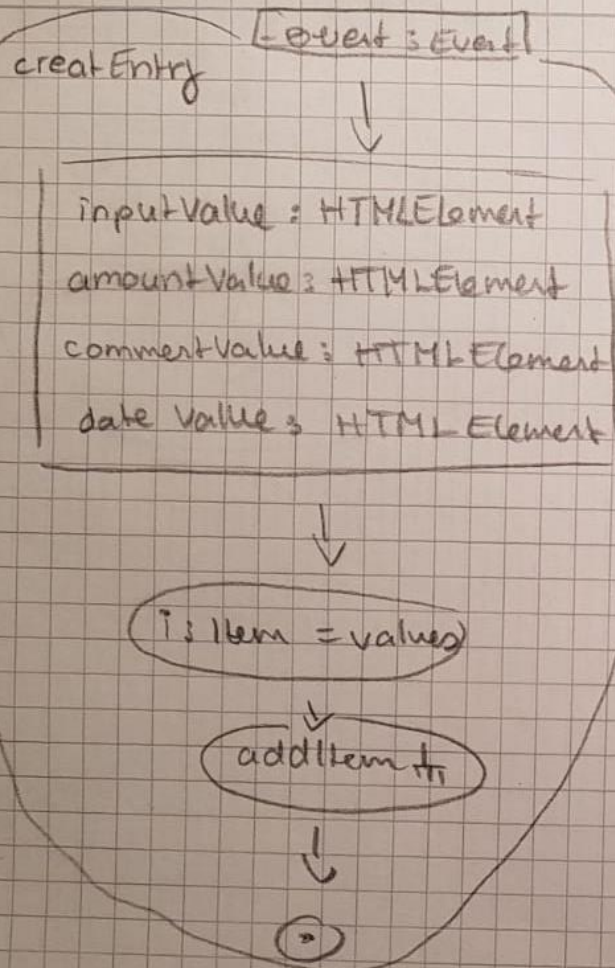 - event : Event
creatEntry
inputValue : HTMLElement
amountValue : HTMLElement
commentValue : HTMLElement
date Value : HTMLElement
i : Item = values
addItem